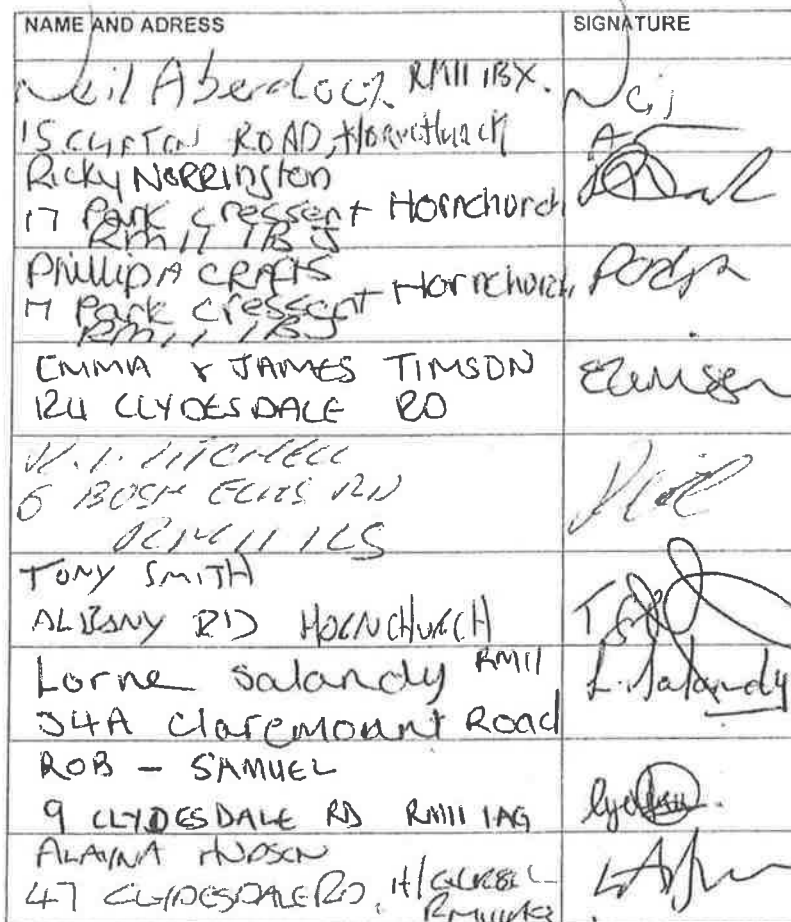 NAME AND ADRESS
SIGNATURE
Neil RM11 1BX.
15 ROAD, Hornchurch
Ricky NORRINGTON
17 Park cressent Hornchurch
RM11 1BJ
Phillip A CRAFTS
17 Park cressent Hornchurch
RM11 1BJ
EMMA & JAMES TIMSON
124 CLYDESDALE RD
MITCHELL
6 RD
RM11 1LS
TONY SMITH
ALBANY RD HORNCHURCH
Lorne Salandy RM11
L. Salandy
34A Claremount Road
ROB - SAMUEL
9 CLYDESDALE RD RM11 1AG
ALAYNA HUDSON
47 CLYDESDALE RD,